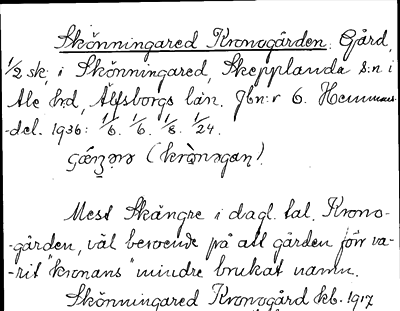 Skönningared Kronogården. Gård,
1/2 sk, i Skönningared, Skepplanda s:n i
Ale hd, Älfsborgs län. Jbn:r 6. Hemmans-
-del. 1936: 1/6. 1/6. 1/8. 1/24.
Mest Skångre i dagl. tal. Krono-
-gården, väl beroende på att gården förr va-
-rit "kronans" mindre brukat namn.
Skönningared Kronogård kb. 1917